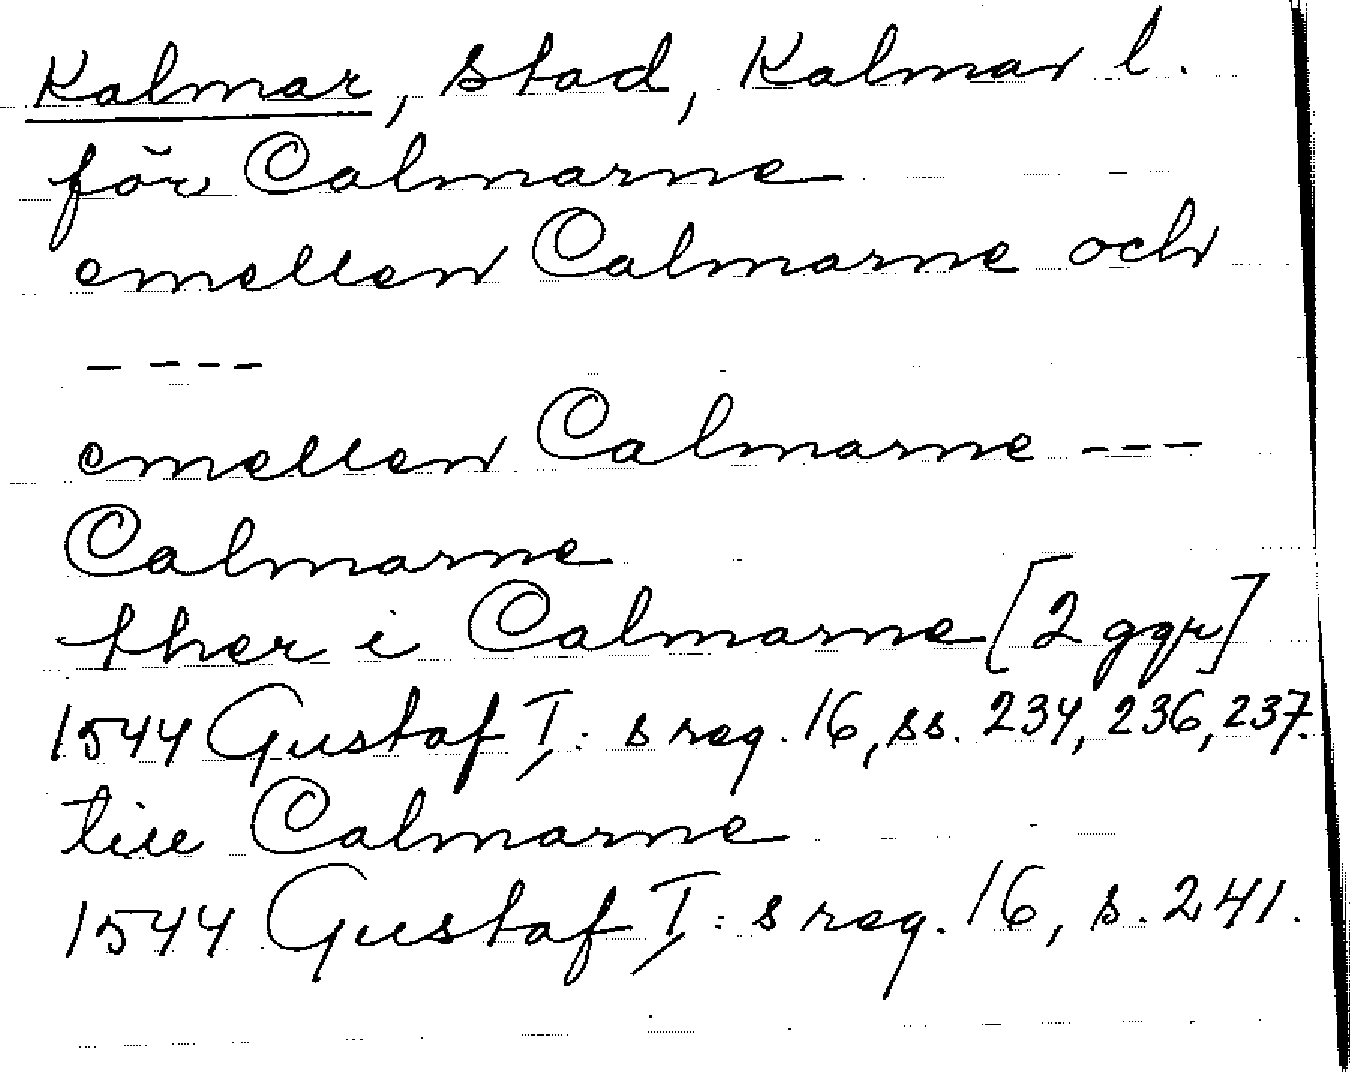 Kalmar, stad, Kalmar l.
för Calmarne
emellen Calmarne och
----
emellen Calmarne ---
Calmarne
ther i Calmarne [2 ggr]
1544 Gustaf I: s reg. 16, ss. 234, 236, 237.
till Calmarne
1544 Gustaf I: s reg. 16, s. 241.